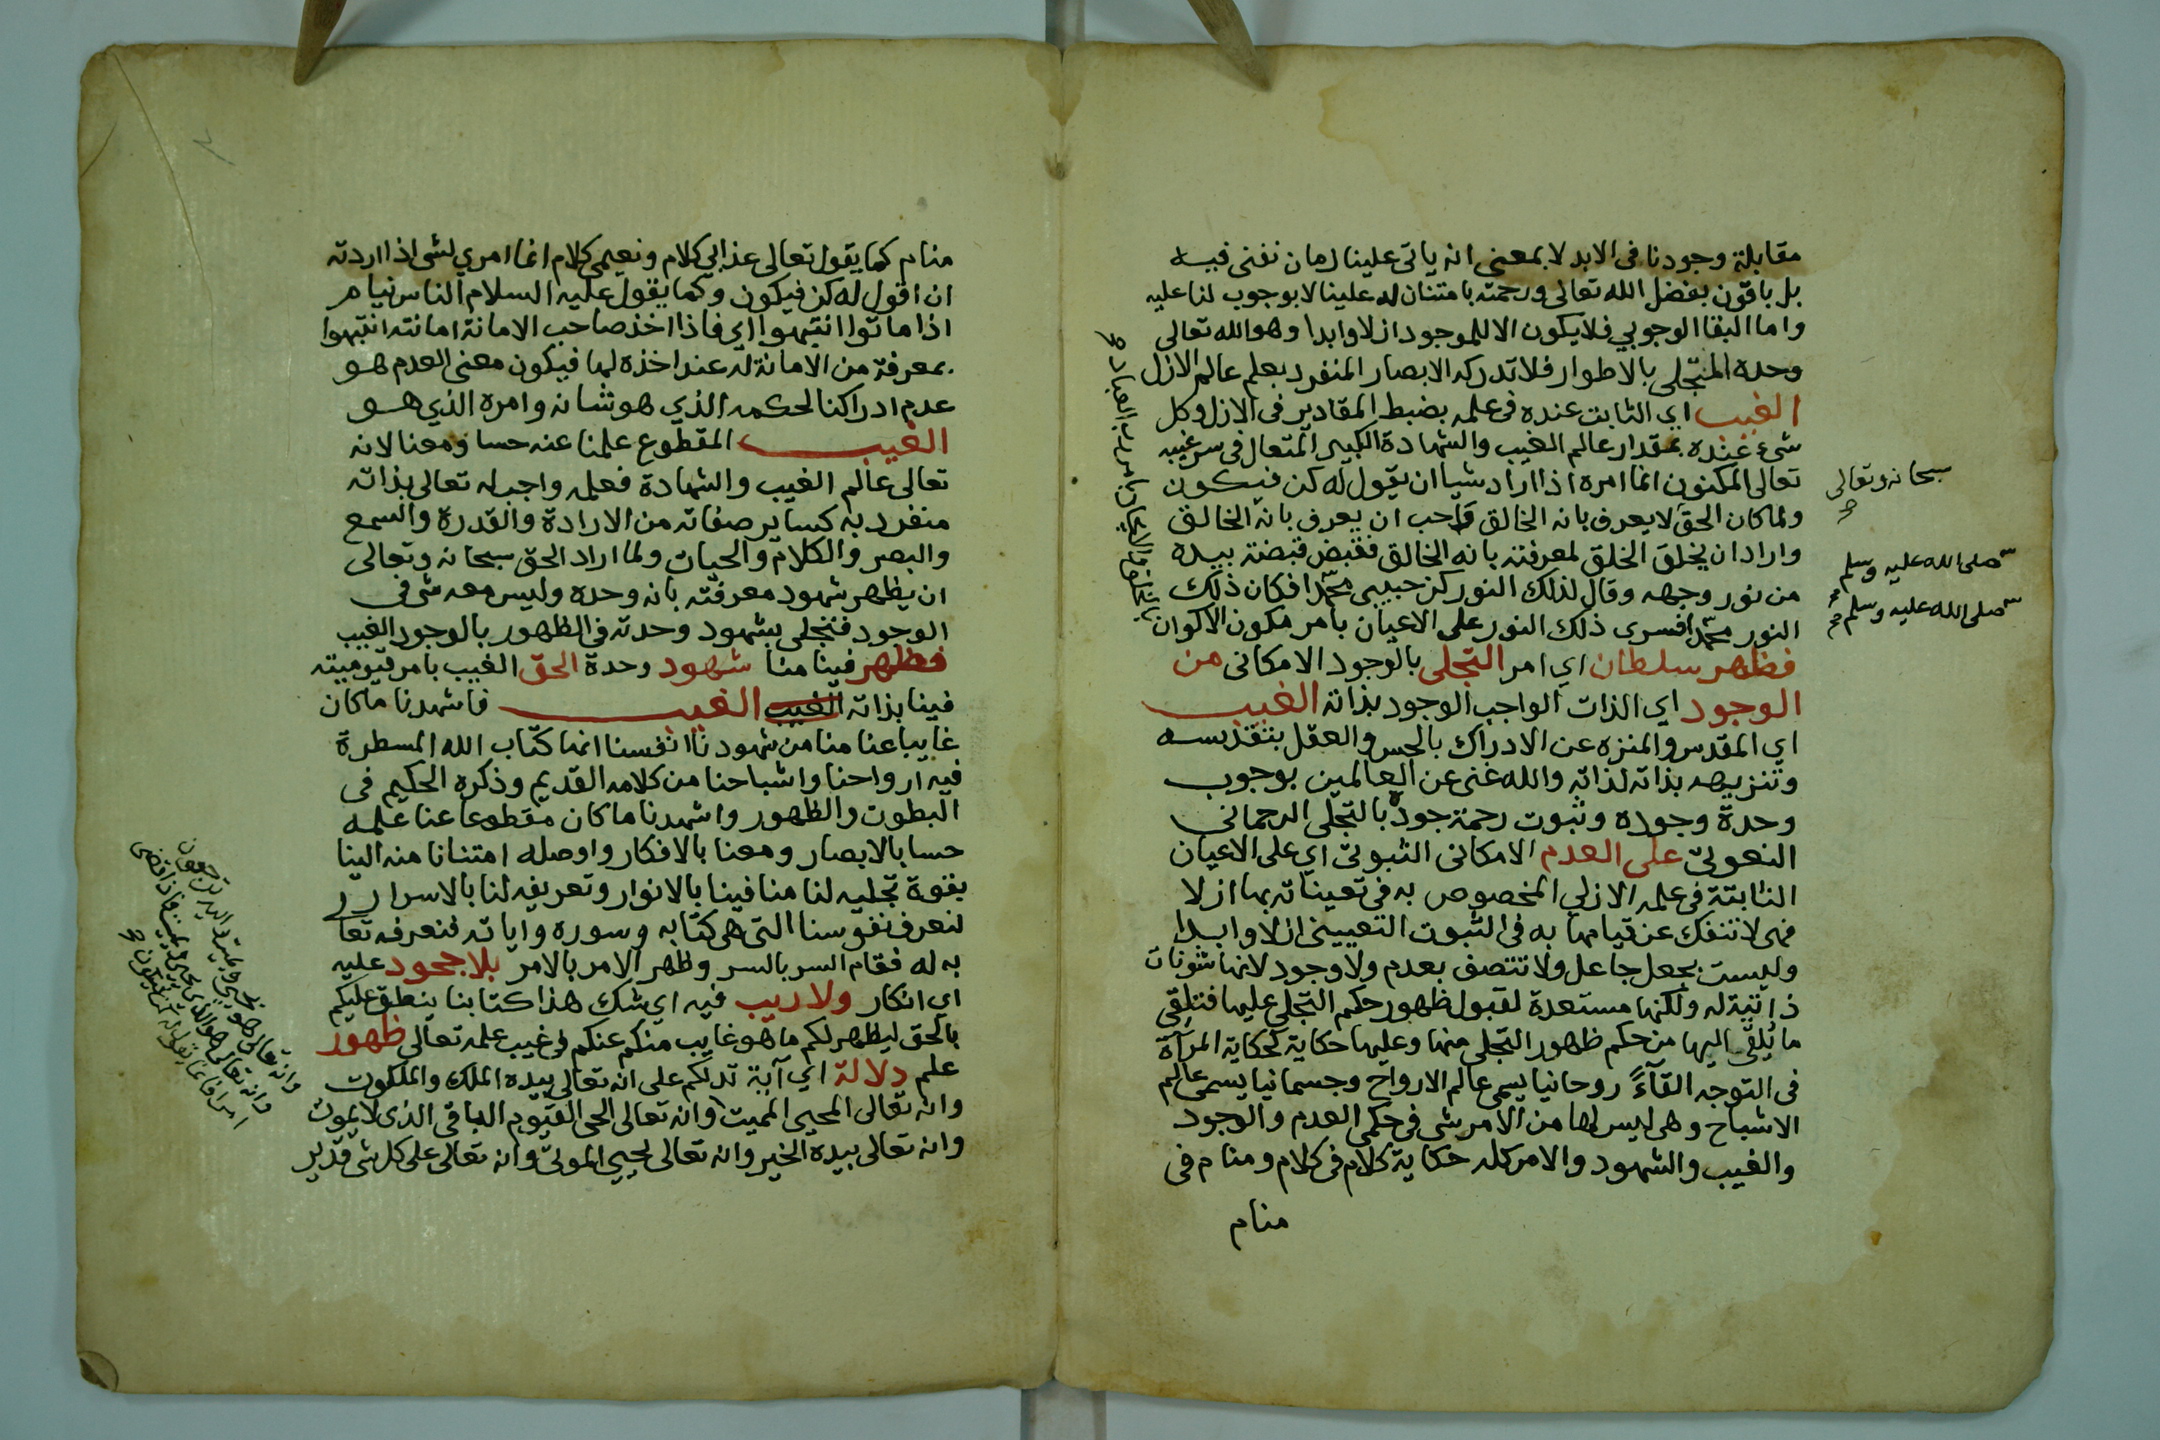 مقابلة وجودنا فى الابد لا بمعنى انه ياتى علينا زمان نفنى فيه
بل باقون بفضل الله تعالى ورحمته بامتنان له علينا لا بوجوب لنا عليه
واما البقا الوجوبي فلا يكون الا للموجود ازلا وابدا وهو الله تعالى
وحده المتجلى بالاطوار فلا تدركه الابصار المنفرد بعلم عالم الازل
الغيب اي الثابت عنده فى علمه بضبط المقادير فى الازل وكل
شئ عنده بمقدار عالم الغيب والشهادة الكبير المتعال فى سر غيبه
تعالى المكنون انما امره اذا اراد شيا ان يقول له كن فيكون
سبحانه وتعالى
ولما كان الحق لا يعرف بانه الخالق واحب ان يعرف بانه الخالق
واراد ان يخلق الخلق لمعرفته بانه الخالق فقبض قبضة بيده
من نور وجهه وقال لذلك النور كن حبيبى محمدا فكان ذلك
صلى الله عليه وسلم
النور محمدا فسرى ذلك النور على الاعيان بامر مكون الاكوان
صلى الله عليه وسلم
فظهر سلطان اي امر التجلى بالوجود الامكانى من
الوجود اي الذات الواجب الوجود بذاته الغيب
اي المقدس والمنزه عن الادراك بالحس والعقل بتقديسه
وتنزيهه بذاته لذاته والله غنى عن العالمين بوجوب
وحدة وجوده وثبوت رحمة جوده بالتجلى الرحمانى
النعوتى على العدم الامكانى الثبوتى اي على الاعيان
الثابتة فى علمه الازلي المخصوص به فى تعيناته بها ازلا
فهى لا تنفك عن قيامها به فى الثبوت التعيينى ازلا وابدا
وليست بجعل جاعل ولا تتصف بعدم ولا وجود لانها شونات
ذاتية له ولكنها مستعدة لقبول ظهور حكم التجلى عليها فتلقى
ما يلقى اليها من حكم ظهور التجلى منها وعليها حكاية كحكاية المرآة
فى التوجه القآءً روحانيا يسمى عالم الارواح وجسمانيا يسمى عالم
الاشباح وهى ليس لها من الامر شى فى حكمى العدم والوجود
والغيب والشهود والامر كله حكاية كلام فى كلام ومنام فى
منام
منام كما يقول تعالى عذابي كلام ونعيمى كلام انما امري لشى اذا اردته
ان اقول له كن فيكون وكما يقول عليه السلام الناس نيام
اذا ماتوا انتبهوا اي فاذا اخذ صاحب الامانة امانته انتبهوا
بمعرفة من الامانة له عند اخذه لها فيكون معنى العدم هو
عدم ادراكنا لحكمه الذي هو شانه وامره الذي هو
الغيب المقطوع علمنا عنه حسا ومعنا لانه
تعالى عالم الغيب والشهادة فعلمه واجب له تعالى بذاته
منفرد به كساير صفاته من الارادة والقدرة والسمع
والبصر والكلام والحيات ولما اراد الحق سبحانه وتعالى
ان يظهر شهود معرفته بانه وحده وليس معه شى فى
الوجود فتجلى بشهود وحدته فى الظهور بالوجود الغيب
فظهر فينا منا شهود وحدة الحق الغيب بامر قيوميته
فينا بذاته الغيب الغيب فاشهدنا ما كان
غايبا عنا منا من شهودنا انفسنا انها كتاب الله المسطرة
فيه ارواحنا واشباحنا من كلامه القديم وذكره الحكيم فى
البطون والظهور واشهدنا ما كان مقطوعا عنا علمه
حسا بالابصار ومعنا بالافكار واوصله امتنانا منه الينا
بقوة تجليه لنا منا فينا بالانوار وتعريفه لنا بالاسرار
لنعرف نفوسنا التى هى كتابه وسوره واياته فنعرفه تعا
به له فقام السر بالسر وظهر الامر بالامر بلا جحود عليه
اي انكار ولا ريب فيه اي شك هذا كتابنا ينطق عليكم
بالحق ليظهر لكم ما هو غايب منكم عنكم فى غيب علمه تعالى ظهور
علم دلالة اي آية تدلكم على انه تعالى بيده الملك والملكوت
وانه تعالى المحيى المميت وانه تعالى الحى القيوم الباقى الذى لا يموت
وانه تعالى بيده الخير وانه تعالى يحيي الموتى وانه تعالى على كل شى قدير
وانه تعالى هو يحي ويميت واليه ترجعون
وانه تعالى هو الذي يحي ويميت فاذا قضى
امرا فانما يقول له كن فيكون